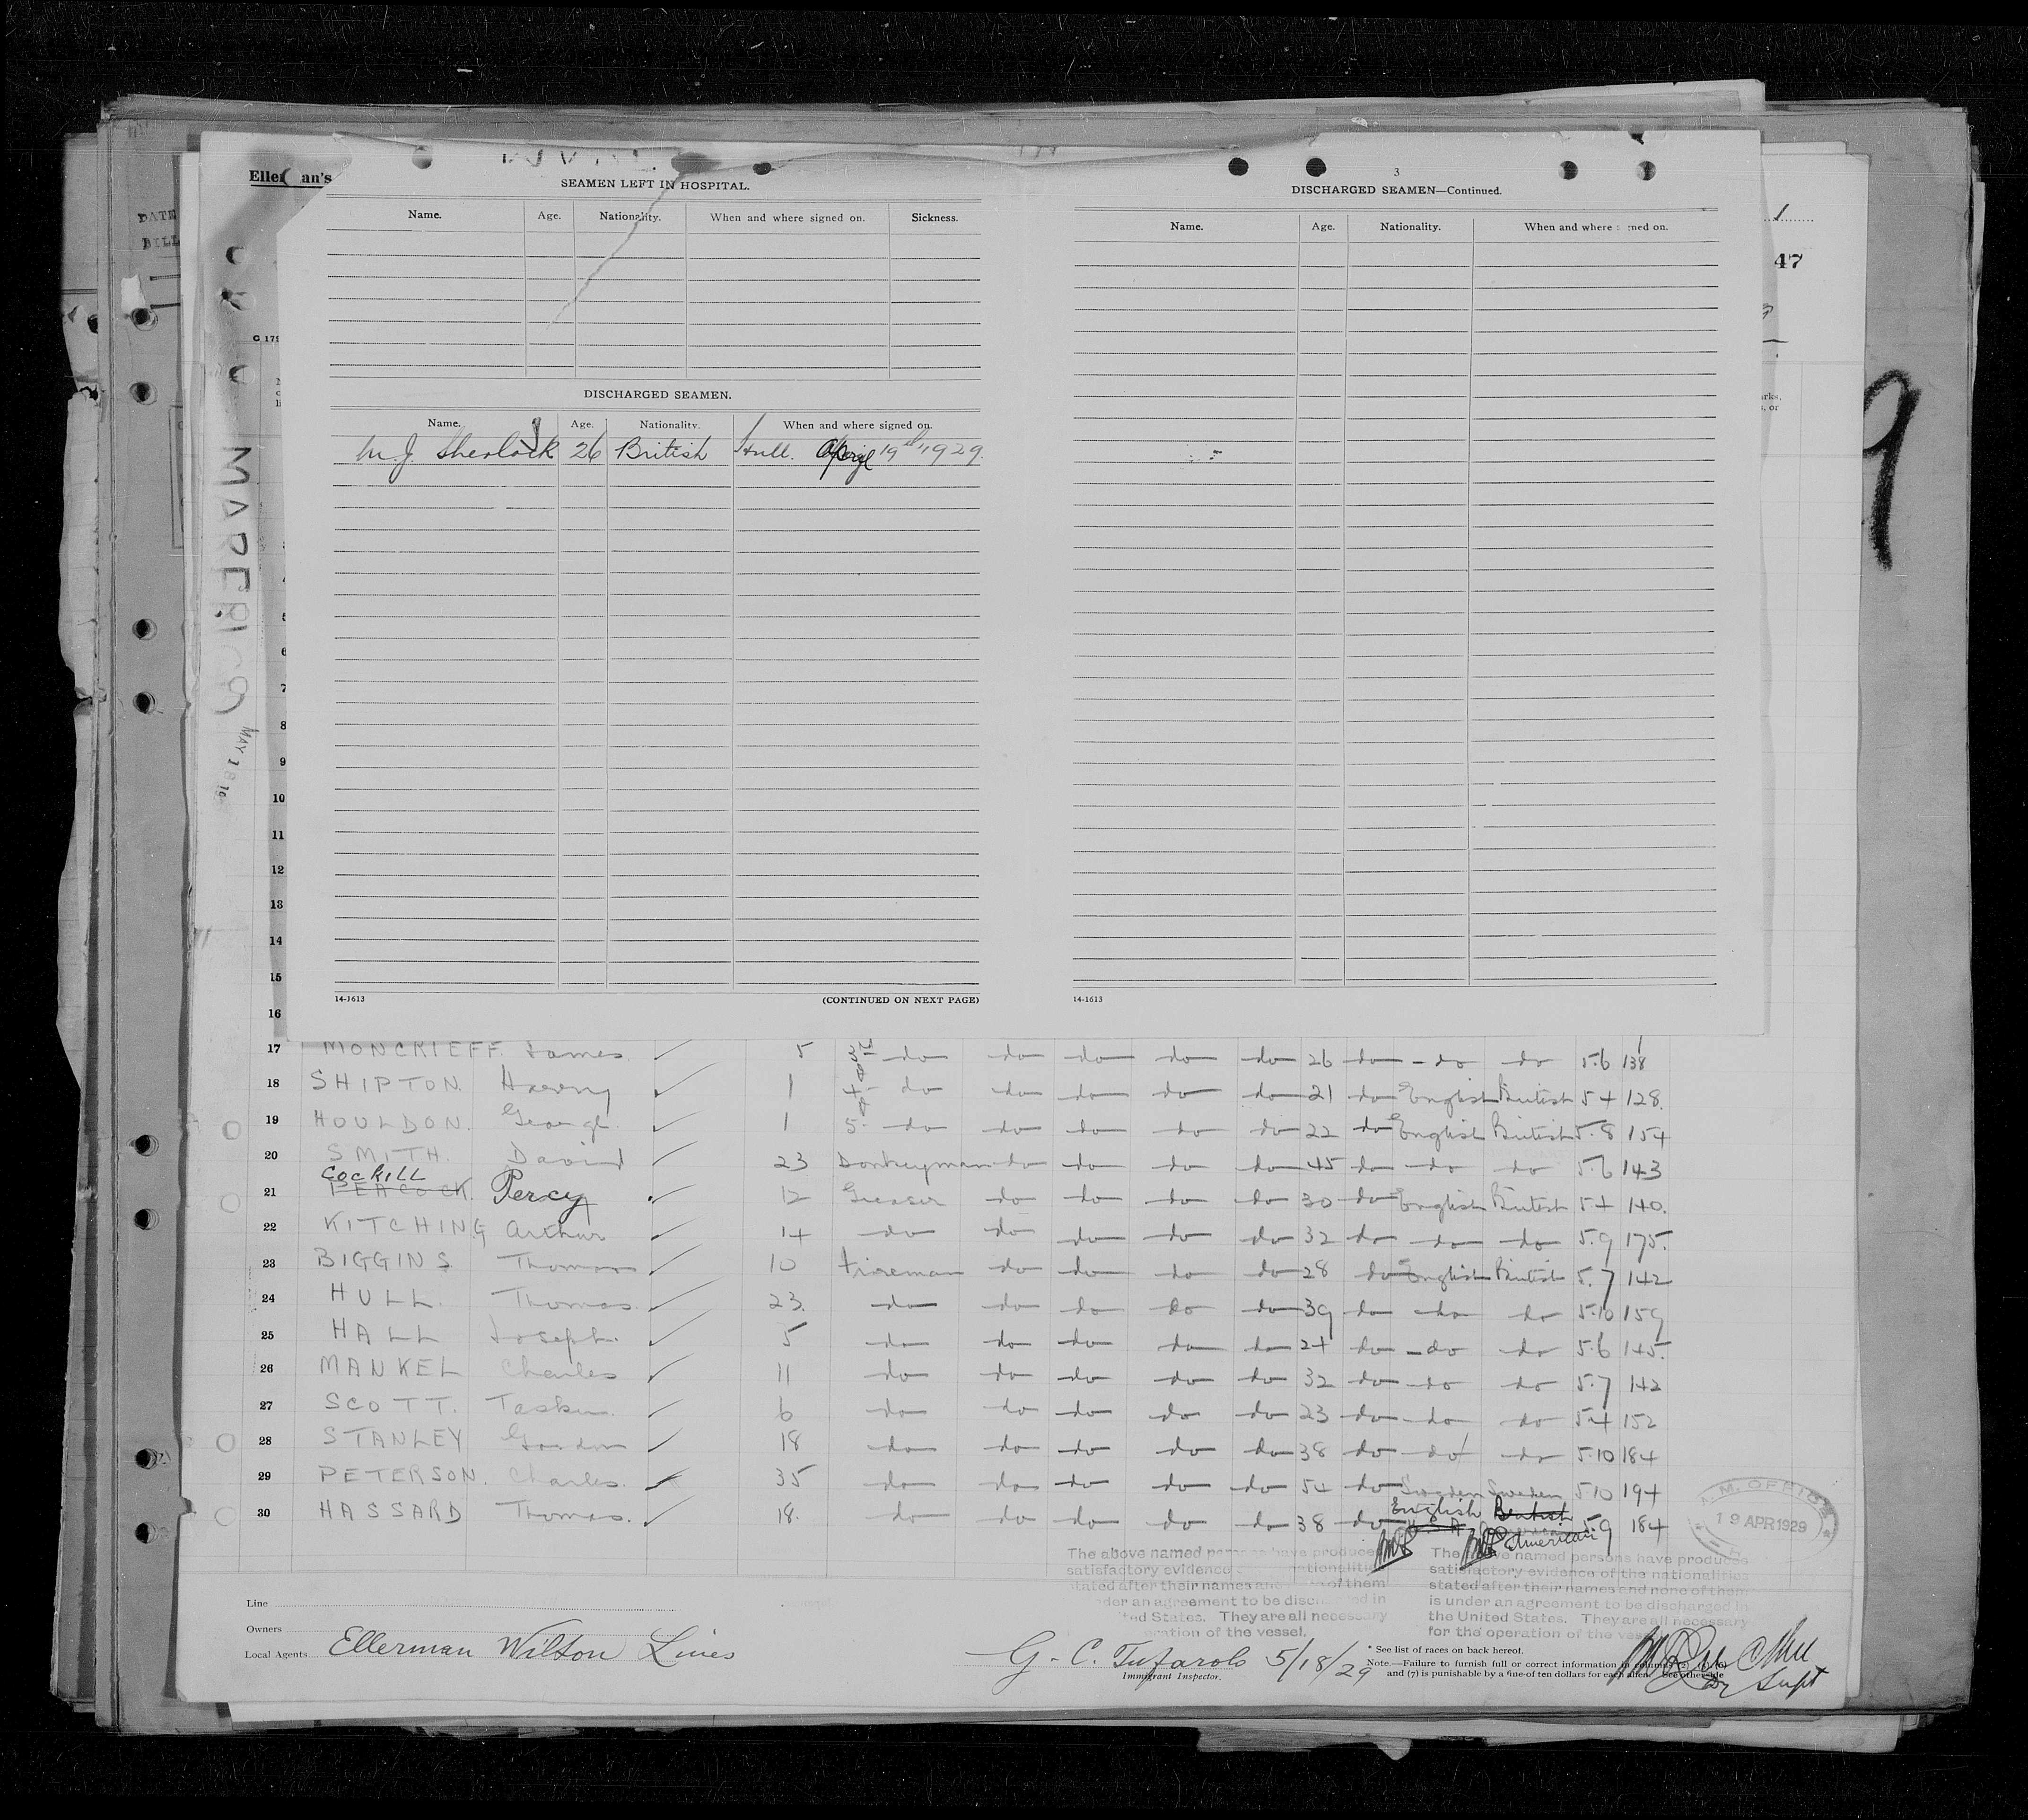 SEAMEN LEFT IN HOSPITAL.
Name. Age. Nationality. When and where signed on. Sickness.
DISCHARGED SEAMEN.
Name. Age. Nationality. When and where signed on.
M. J. Sherlock 26 British Hull. April 19th 1929.
14-1613 (CONTINUED ON NEXT PAGE)
3
DISCHARGED SEAMEN—Continued.
Name. Age. Nationality. When and where
14-1613
1
47
9
MAY 18
8
9
10
11
12
13
14
15
16
17 MONCKIEFF. James 5 3rd do do do do do 26 do do do 5.6 138
18 SHIPTON. Harry 1 4th do do do do do 21 do English British 5 4 128.
19 HOULDON. George 1 5th do do do do do 22 do English British 5.8 154
20 SMITH. David 23 Donkeyman do do do do 45 do do do 5.6 143
COCKILL
21 PEACOCK. Percy 12 Greaser do do do do 30 do English British 5 4 140.
22 KITCHING Arthur 14 do do do do do 32 do do do 5.9 175.
23 BIGGINS Thomas 10 Fireman do do do do 28 do English British 5.7 142
24 HULL. Thomas 23. do do do do do 39 do do do 5.10 159
25 HALL Joseph. 5 do do do do do 24 do do do 5.6 145.
26 MANKEL Charles 11 do do do do do 32 do do do 5.7 142
27 SCOTT. 6 do do do do do 23 do do do 5.4 152
28 STANLEY Gordon 18 do do do do do 38 do do do 5.10 184
29 PETERSON. Charles. 35 do do do do do 54 do Sweden Sweden 5.10 194
30 HASSARD Thomas. 18. do do do do do 38 do English British 5.9 184
U.S.A. American
19 APR 1929
The above named persons have produced
satisfactory evidence of the nationalities
stated after their names and none of them
is under an agreement to be discharged in
the United States. They are all necessary
for the operation of the vessel.
The above named persons have produced
satisfactory evidence of the nationalities
stated after their names and none of them
is under an agreement to be discharged in
the United States. They are all necessary
for the operation of the vessel.
Line
Owners
Local Agents Ellerman Wilson Lines
G. C. Tufarolo 5/18/29
Immigrant Inspector.
* See list of races on back hereof.
Note.—Failure to furnish full or correct information in columns
and (7) is punishable by a fine of ten dollars for each alien. See other side
Supt